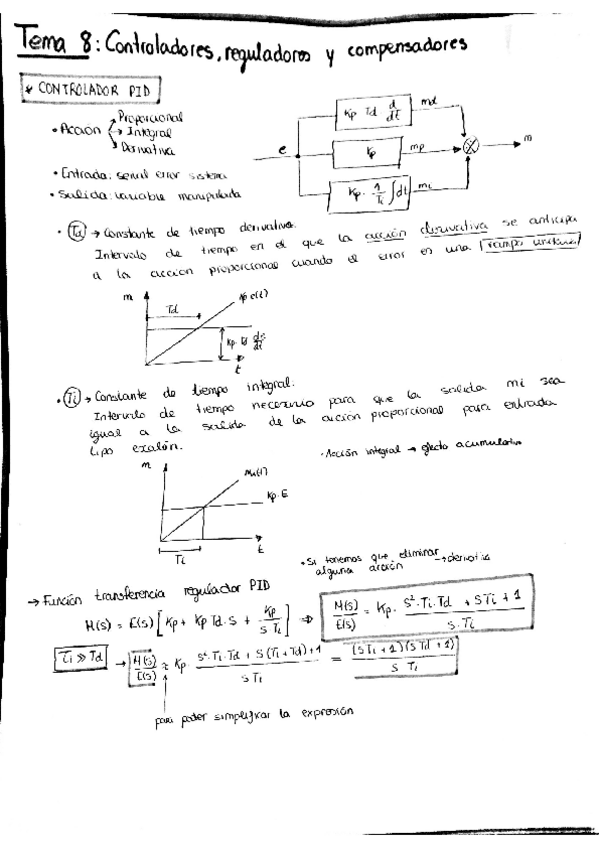 Tema 8: Controladores, reguladores y compensadores
* CONTROLADOR PID
• Acción → Proporcional
→ Integral
→ Derivativa
• Entrada: señal error sistema
• Salida: variable manipulada
e
Kp Td d/dt
md
Kp
mp
Kp · 1/Ti ∫dt
mi
m
• Td → Constante de tiempo derivativa.
Intervalo de tiempo en el que la acción derivativa se anticipa
a la acción proporcional cuando el error es una rampa unitaria
m
Td
Kp e(t)
Kp Td de/dt
t
• Ti → Constante de tiempo integral.
Intervalo de tiempo necesario para que la salida mi sea
igual a la salida de la acción proporcional para entrada
tipo escalón.
• Acción integral → efecto acumulativo
m
mi(t)
Kp·E
Ti
t
• Si tenemos que eliminar alguna acción → derivativa
→ Función transferencia regulador PID
M(s) = E(s) [Kp + Kp Td·s + Kp/(s Ti)] ⇒ M(s)/E(s) = Kp · (s²·Ti·Td + sTi + 1)/(s·Ti)
Ti ≫ Td → M(s)/E(s) ≈ Kp · (s²·Ti·Td + s(Ti+Td)+1)/(s Ti) = (sTi+1)(sTd+1)/(s Ti)
para poder simplificar la expresión